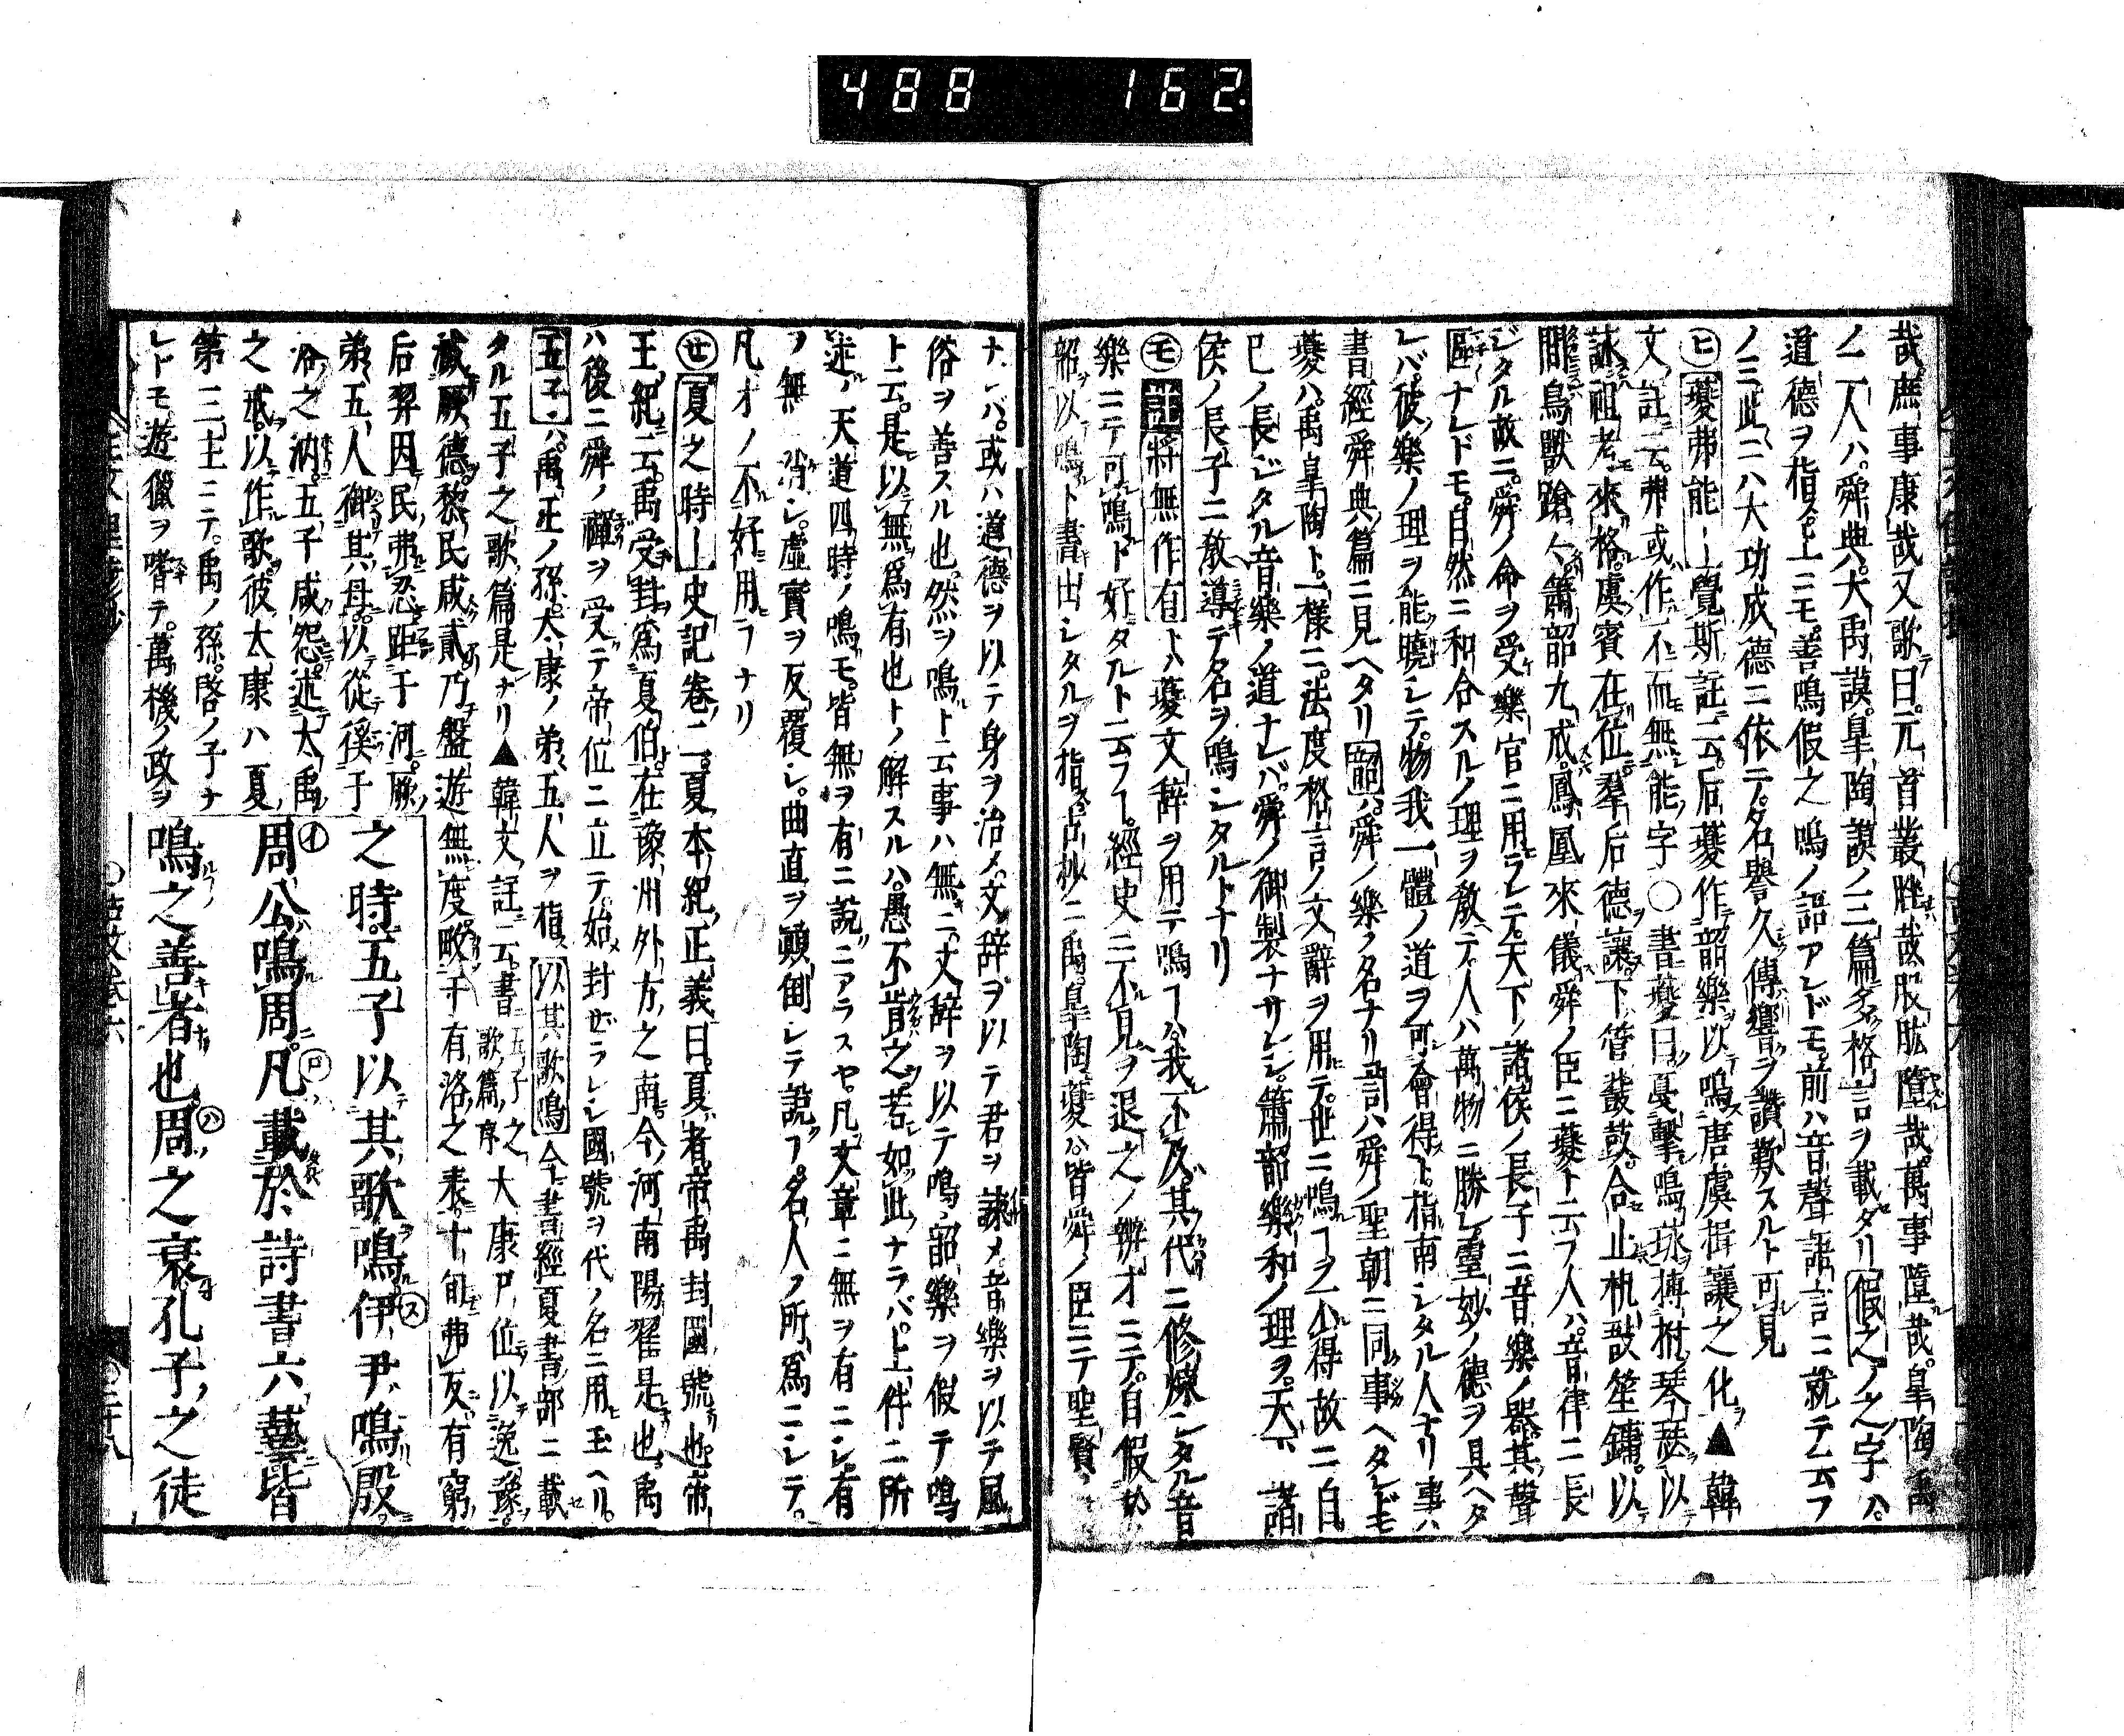 488 162.
哉庶事康哉又歌曰元首叢脞哉股肱墮哉萬事墮哉皐陶禹
ノ二人ハ舜典大禹謨皐陶謨ノ三篇多格言ヲ載タリ假之ノ之字ハ
道德ヲ指ス上ニモ善鳴假之鳴ノ語アレドモ前ハ音聲語言ニ就テ云フ
ノミ此ニハ大功成德ニ依テノ名譽久傳響ヲ讚歎スルト可見
ヒ夔弗能ー覺斯註云后夔作韶樂以鳴唐虞揖讓之化▲韓
文註云弗或作不而無能字〇書夔曰戞擊鳴球搏拊琴瑟以
詠祖考來格虞賓在位羣后德讓下管鼗鼓合止柷敔笙鏞以
間鳥獸蹌々簫韶九成鳳凰來儀舜ノ臣ニ夔ト云フ人ハ音律ニ長
ジタル故ニ舜ノ命ヲ受樂官ニ用ラレテ天下ノ諸侯ノ長子ニ音樂ノ器其聲
區ナレドモ自然ニ和合スルノ理ヲ敎テ人ハ萬物ニ勝レ靈妙ノ德ヲ具ヘタ
レバ彼樂ノ理ヲ能曉シテ物我一體ノ道ヲ可會得ト指南シタル人ナリ事ハ
書經舜典篇ニ見ヘタリ韶ハ舜ノ樂ノ名ナリ司ハ舜ノ聖朝ニ同事ヘタレドモ
夔ハ禹皐陶ト一樣ニ法度格言ノ文辭ヲ用テ世ニ鳴ヿヲ不得故ニ自
己ノ長ジタル音樂ノ道ナレバ舜ノ御製ナサレシ簫韶樂和ノ理ヲ天下諸
侯ノ長子ニ敎導テ名ヲ鳴シタルトナリ
モ註將無作有トハ夔文辞ヲ用テ鳴ヿハ我不及其代ニ修煉シタル音
樂ニテ可鳴ト好タルト云フヿ經史ニ不見ヲ退之ノ辨才ニテ自假於
韶以鳴ト書出シタルヲ指ス古抄ニ禹皐陶夔ハ皆舜ノ臣ニテ聖賢
ナレバ或ハ道德ヲ以テ身ヲ治メ文辞ヲ以テ君ヲ諫メ音樂ヲ以テ風
俗ヲ善スル也然ヲ鳴ト云事ハ無ニ文辞ヲ以テ鳴韶樂ヲ假テ鳴
ト云是以無爲有也トノ解スルハ愚不肯之若如此ナラバ上件ニ所
述ノ天道四時ノ鳴モ皆無ヲ有ニ說ニアラスヤ凡文章ニ無ヲ有ニシ有
ヲ無ニ沿シ虛實ヲ反覆シ曲直ヲ顚倒シテ說ヿ名人ノ所爲ニシテ
凡才ノ不好用ヿナリ
セ夏之時ー史記卷二夏本紀正義曰夏者帝禹封國號也帝
王紀云禹受封爲夏伯在豫州外方之南今河南陽翟是也禹
ハ後ニ舜ノ禪ヲ受テ帝位ニ立テ始メ封ゼラレシ國號ヲ代ノ名ニ用玉ヘリ
五子ハ禹王ノ孫大康ノ弟五人ヲ指ス以其歌鳴今書經夏書部ニ載
タル五子之歌篇是ナリ▲韓文註云書五子之歌篇序大康尸位以逸豫
滅厥德黎民咸貳乃盤遊無度畋于有洛之表十旬弗反有窮
后羿因民弗忍距于河厥
弟五人御其母以從徯于
洛之汭五子咸怨述大禹
之戒以作歌彼太康ハ夏
第三主ニテ禹ノ孫啓ノ子ナ
レトモ遊獵ヲ嗜テ萬機ノ政ヲ
之時五子以其歌鳴伊尹鳴殷
周公鳴周凡載於詩書六藝皆
鳴之善者也周之衰孔子之徒